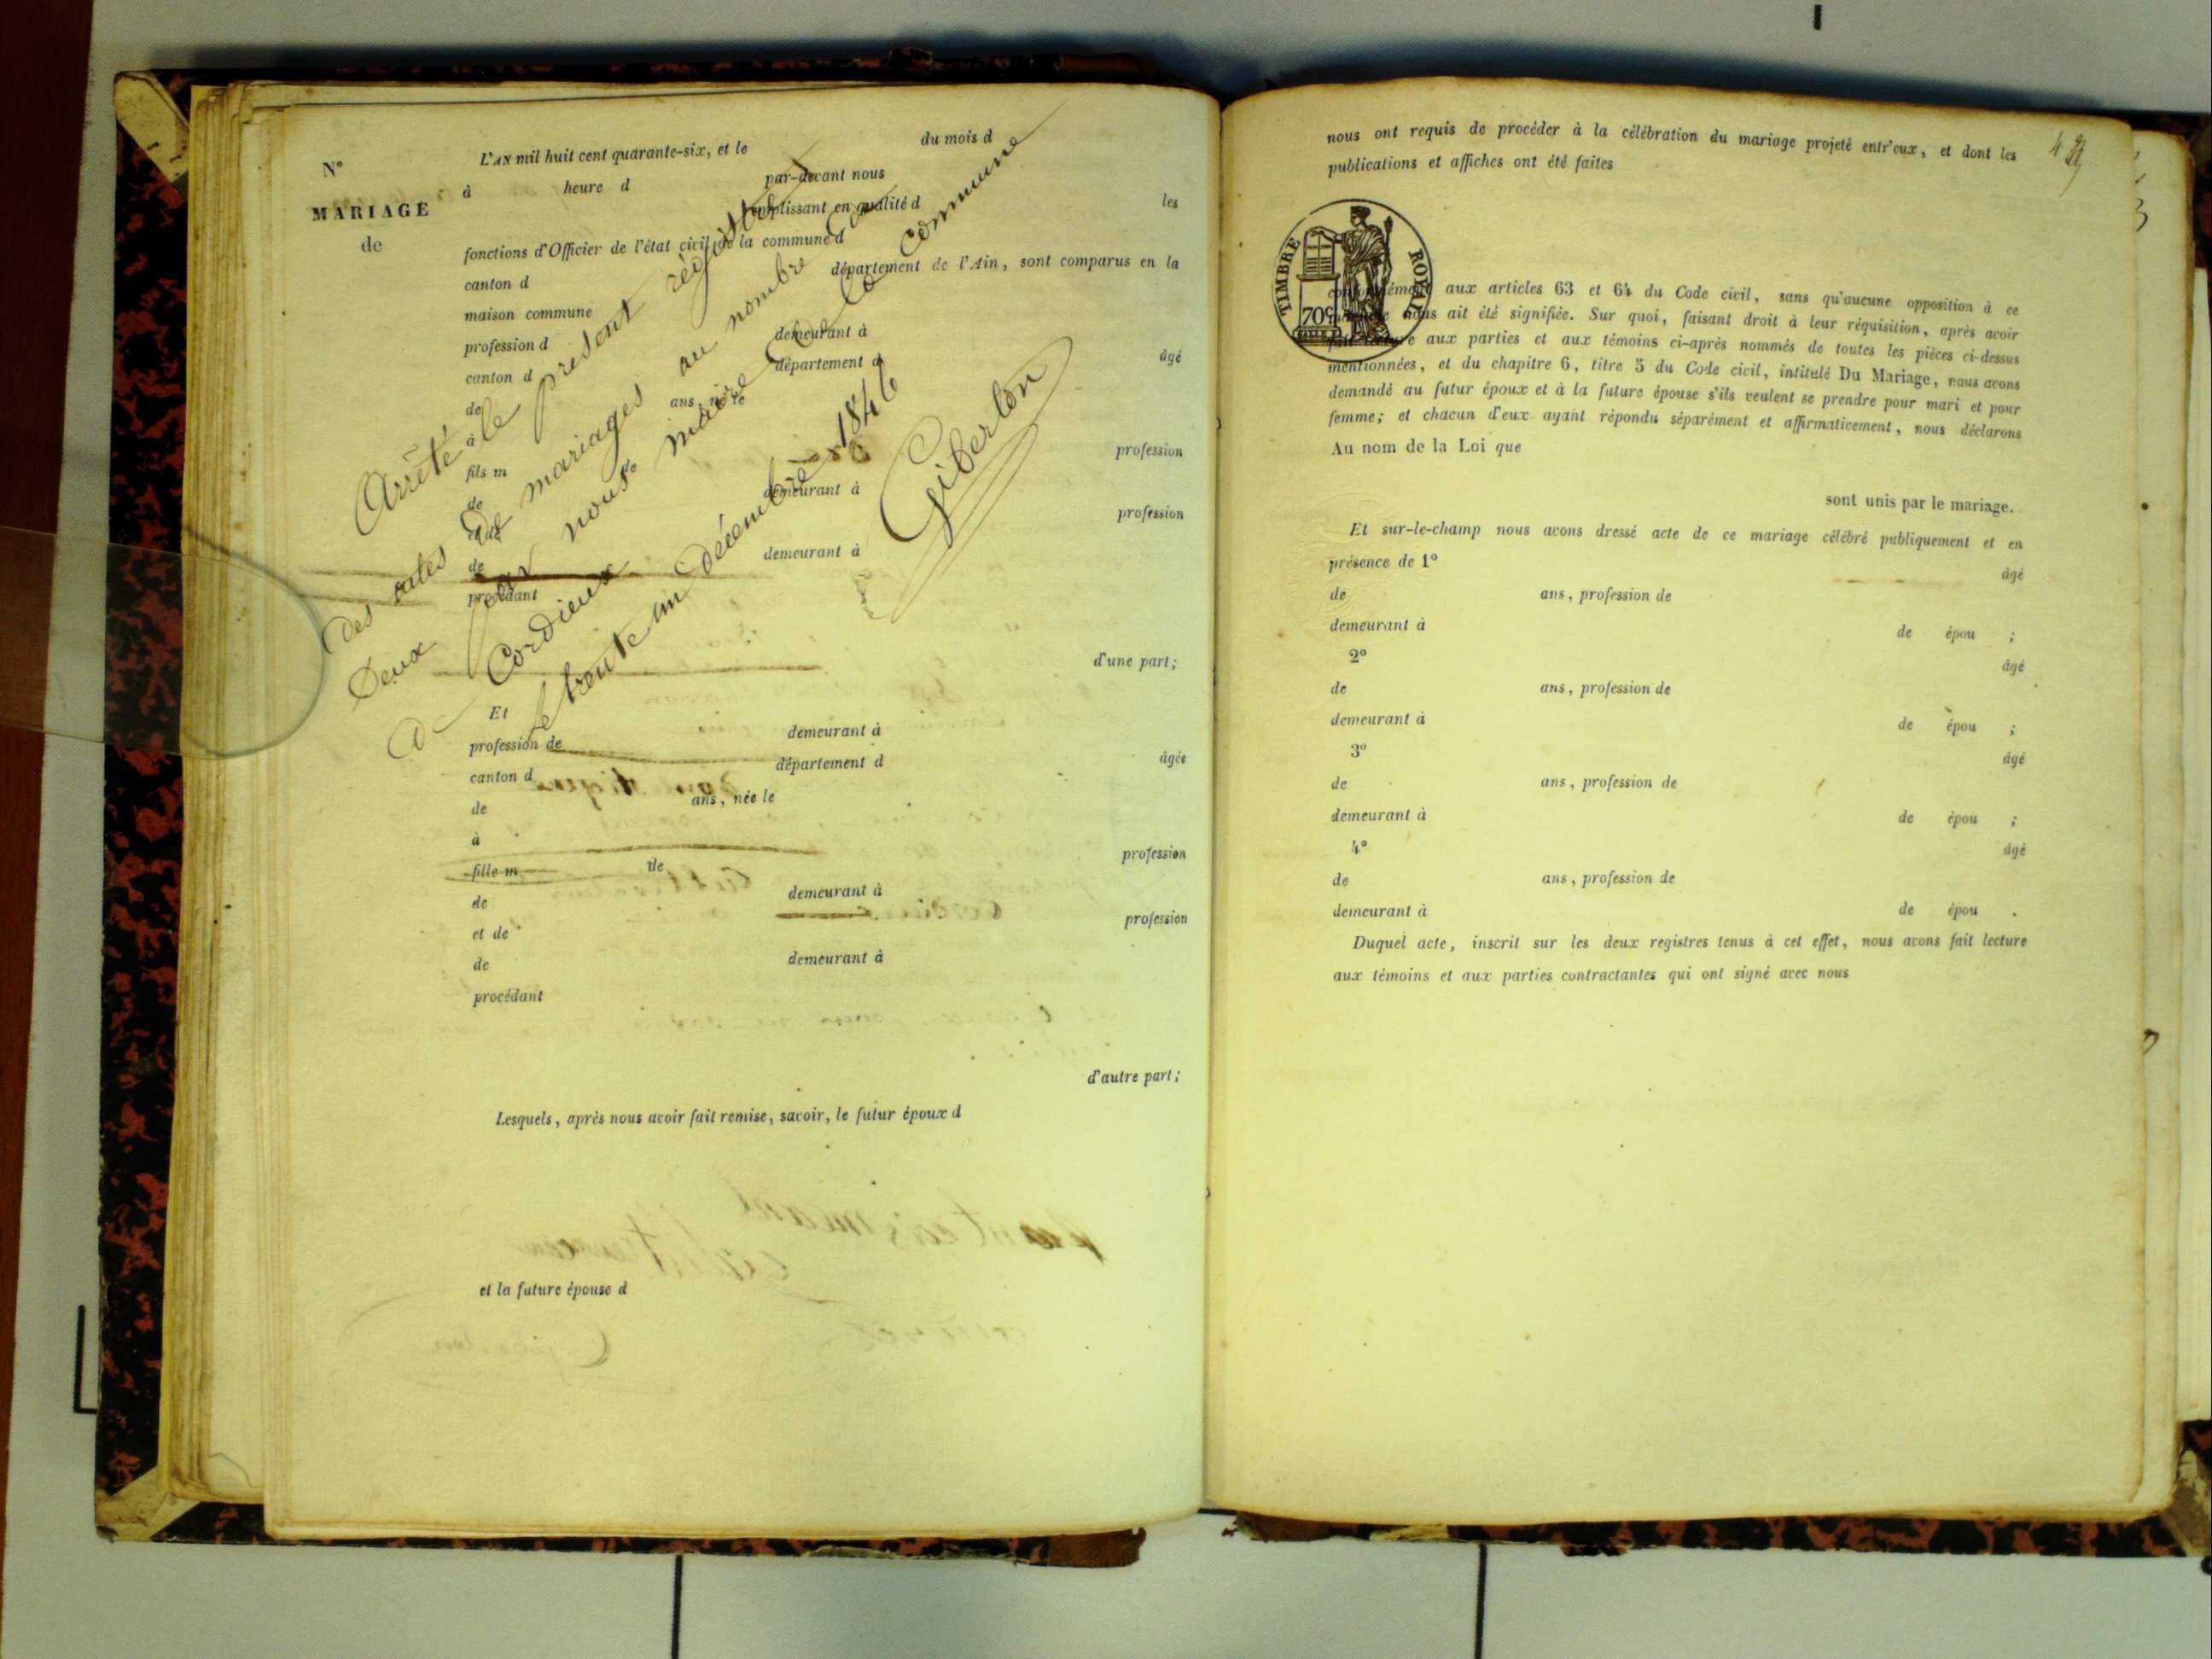 N°
MARIAGE
de
L'AN mil huit cent quarante-six, et le du mois d
à heure d par-devant nous
remplissant en qualité d les
fonctions d'Officier de l'état civil de la commune d
canton d département de l'Ain, sont comparus en la
maison commune
profession d demeurant à
canton d département d âgé
de ans, né le
à
fils m de profession
de demeurant à
et de profession
de demeurant à
procédant
d'une part;
Et
profession de demeurant à
canton d département d âgée
de ans, née le
à
fille m de profession
de demeurant à
et de profession
de demeurant à
procédant
d'autre part;
Lesquels, après nous avoir fait remise, savoir, le futur époux d
et la future épouse d
Arrêté le présent régistre
des actes de mariages au nombre de
Deux par nous maire de la commune
de Cordieux
le trente un décembre 1846
Giberton
nous ont requis de procéder à la célébration du mariage projeté entr'eux, et dont les
publications et affiches ont été faites
TIMBRE ROYAL
70c
conformément aux articles 63 et 64 du Code civil, sans qu'aucune opposition à ce
mariage nous ait été signifiée. Sur quoi, faisant droit à leur réquisition, après avoir
fait lecture aux parties et aux témoins ci-après nommés de toutes les pièces ci-dessus
mentionnées, et du chapitre 6, titre 5 du Code civil, intitulé Du Mariage, nous avons
demandé au futur époux et à la future épouse s'ils veulent se prendre pour mari et pour
femme; et chacun d'eux ayant répondu séparément et affirmativement, nous déclarons
Au nom de la Loi que
sont unis par le mariage.
Et sur-le-champ nous avons dressé acte de ce mariage célébré publiquement et en
présence de 1° âgé
de ans, profession de
demeurant à de épou ;
2° âgé
de ans, profession de
demeurant à de épou ;
3° âgé
de ans, profession de
demeurant à de épou ;
4° âgé
de ans, profession de
demeurant à de épou .
Duquel acte, inscrit sur les deux registres tenus à cet effet, nous avons fait lecture
aux témoins et aux parties contractantes qui ont signé avec nous